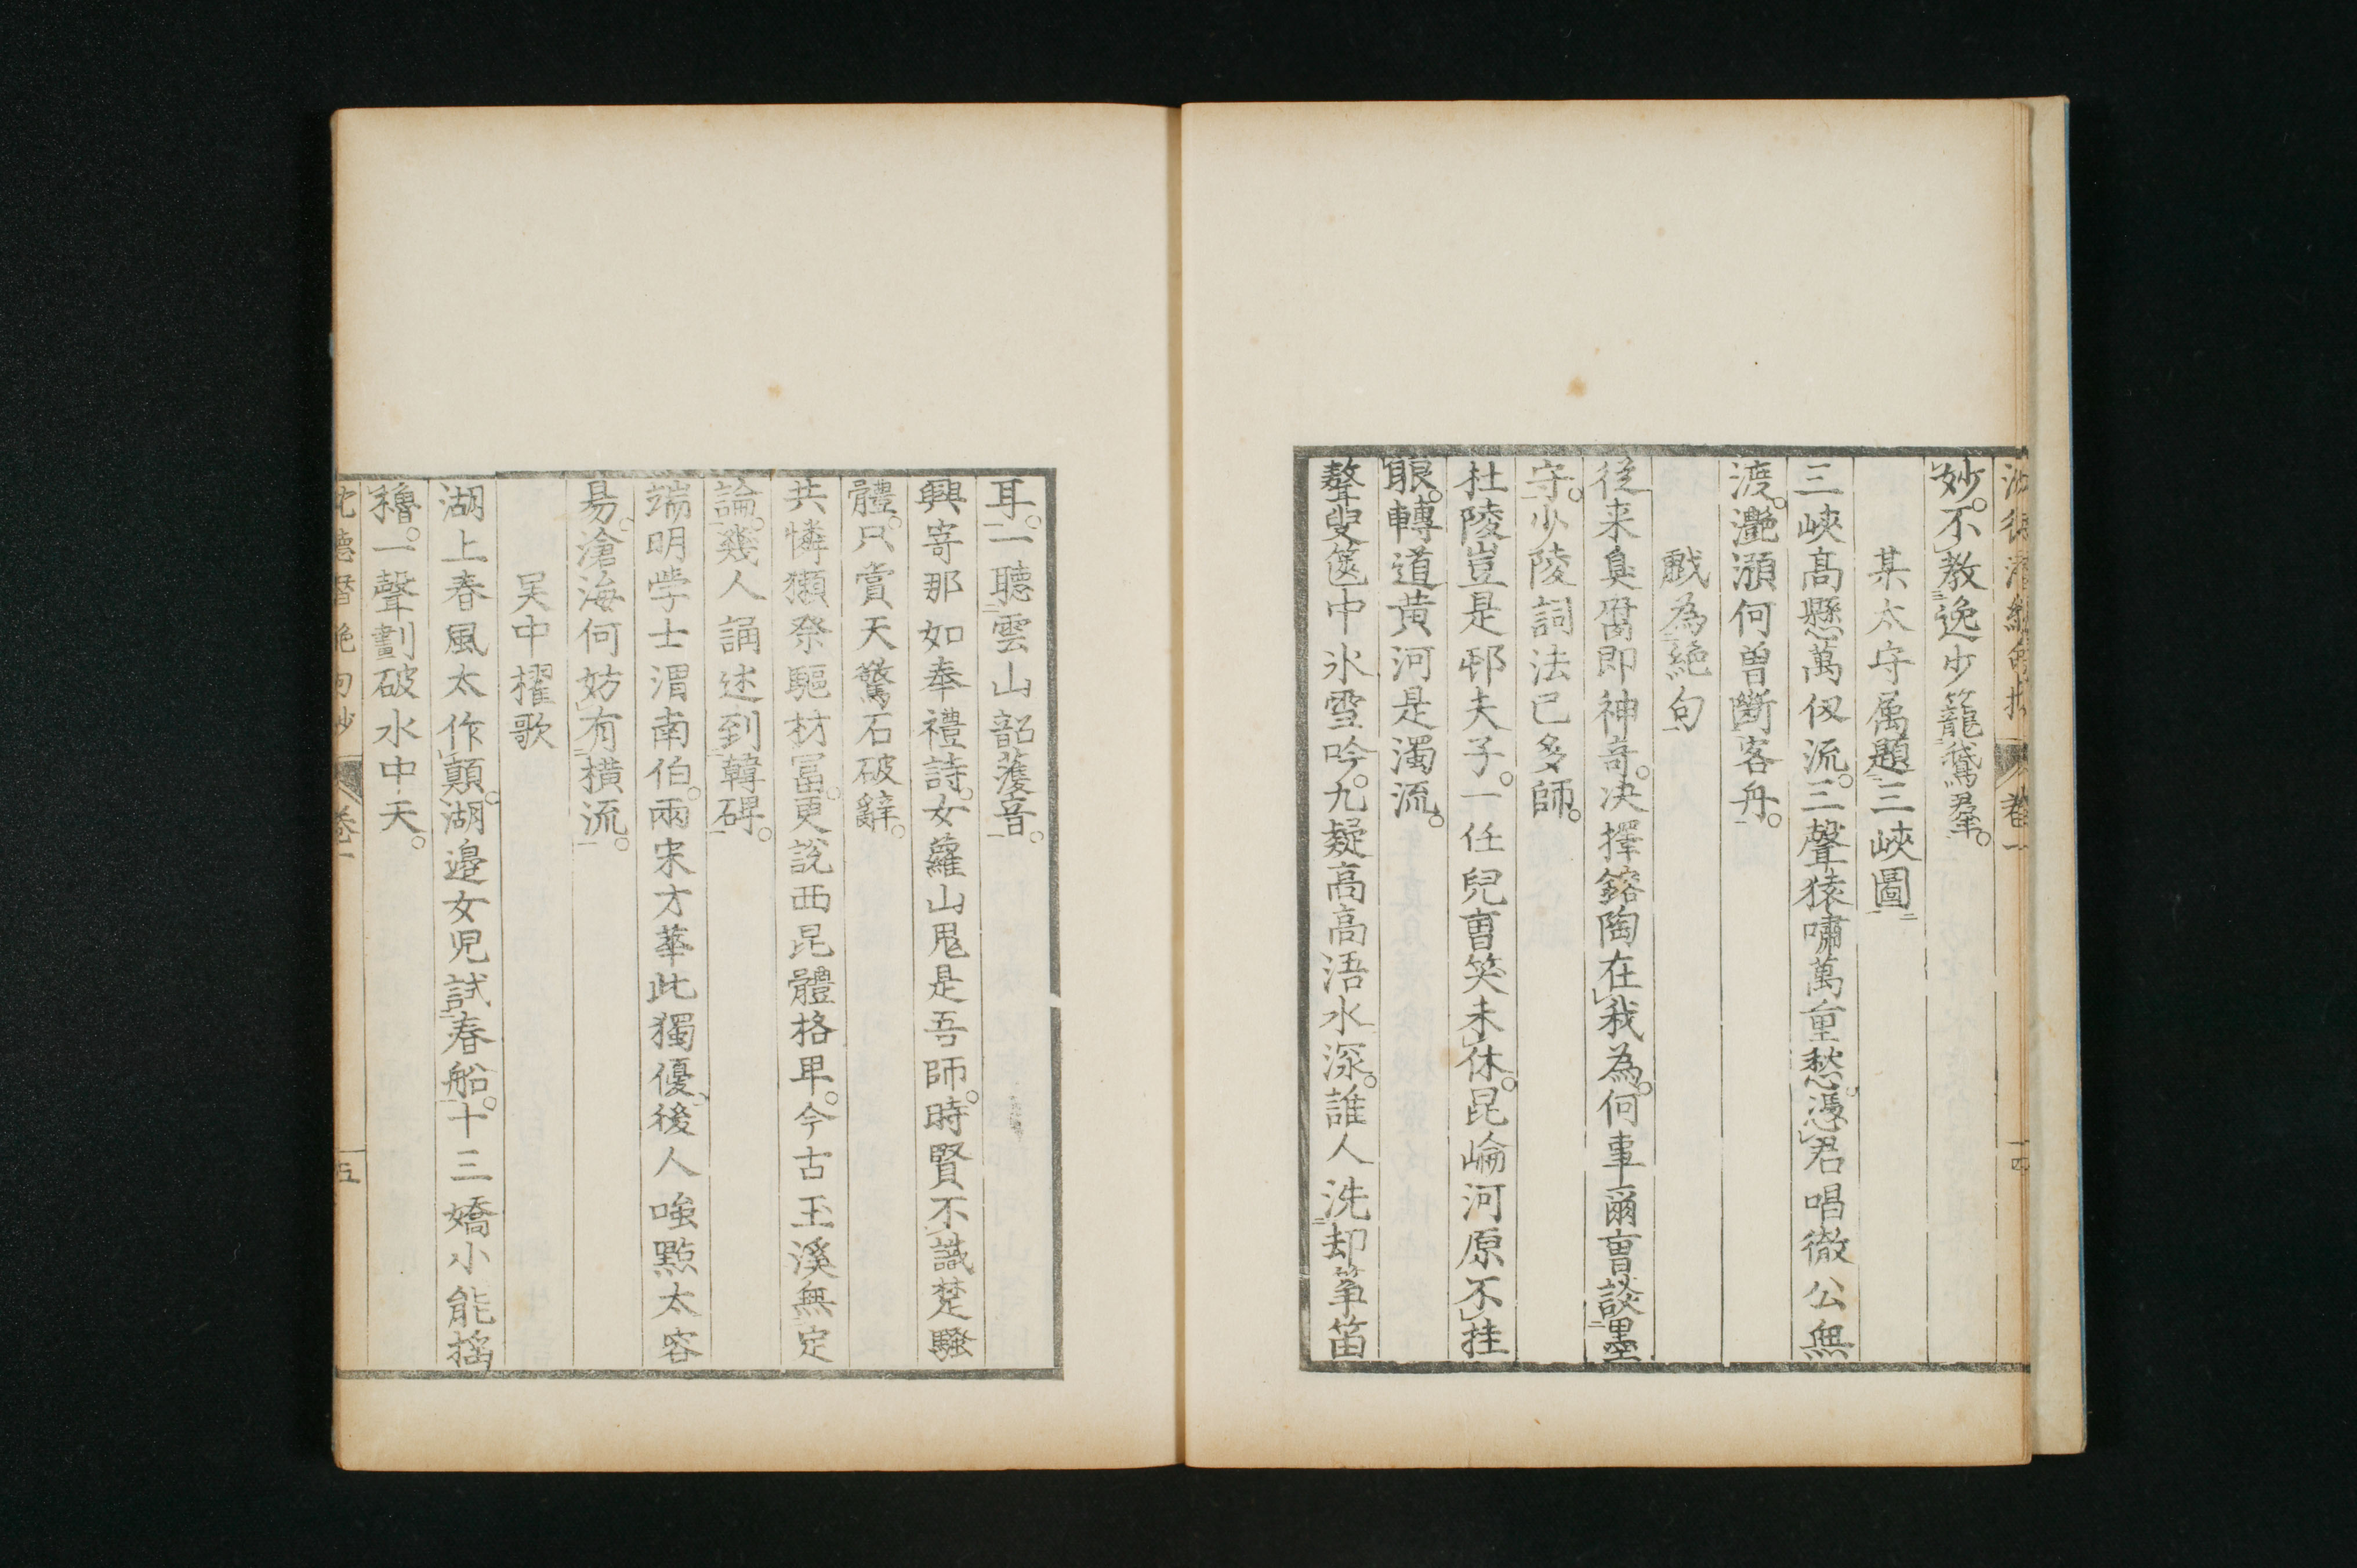 妙。不教逸少籠鵞羣。
某太守属題三峽圖
三峽高懸萬仭流。三聲猿嘯萬重愁。憑君唱徹公無
渡。灔澦何曽斷客舟。
戲為絶句
從来臭腐即神奇。决擇鎔陶在我為。何事爾曹談墨
守。少陵詞法已多師。
杜陵豈是邨夫子。一任兒曹笑未休。昆崘河原不挂
眼。轉道黄河是濁流。
聱叟篋中氷雪吟。九疑高高浯水深。誰人洗却箏笛
耳。一聽雲山韶䕶音。
興寄那如奉禮詩。女蘿山鬼是吾師。時賢不識楚騷
體。只賞天驚石破辭。
共憐獺祭驅材冨。更説西昆體格卑。今古玉溪無定
論。幾人誦述到韓碑。
端明学士渭南伯。兩宋才華此獨優。後人嗤點太容
易。滄海何妨有横流。
吴中櫂歌
湖上春風太作顛。湖邉女児試春船。十三嬌小能揺
櫓。一聲劃破水中天。
沈德潜絶句抄
卷一
五